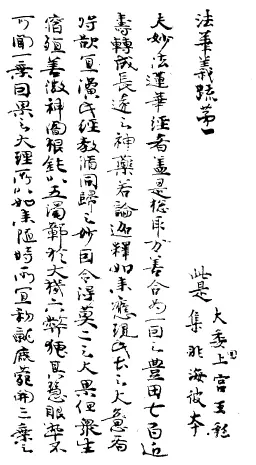 法華義疏第一
大委国上宮王私
此是　集非海彼本
夫妙法蓮華經者蓋是惣取万善合為一因之豊田七百近
壽轉成長遠之神藥若論迦釋如来應現此土之大意者
将欲宜演此經教脩同歸之妙因令得莫二之大果但衆生
宿殖善微神闇根鈍以五濁鄣於大機六弊掩其慧眼卒不
可聞一乗因果之大理所以如来随時所宜初就鹿苑開三乗之